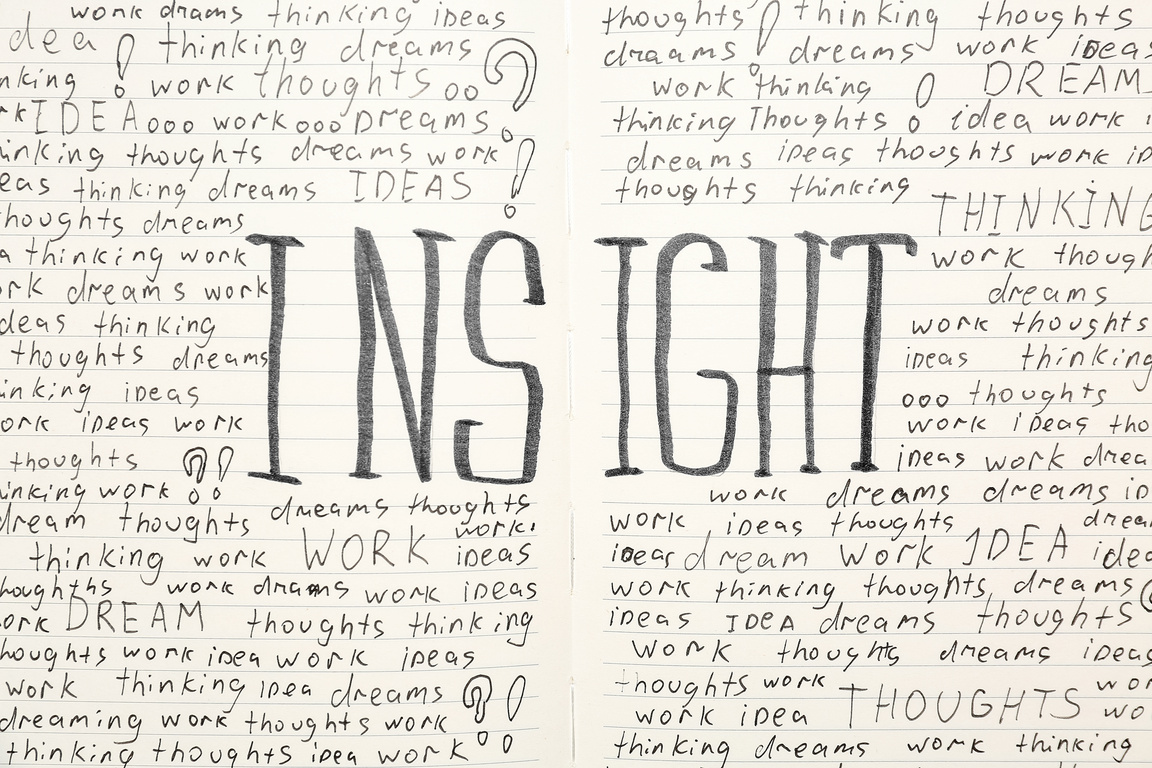 work drams thinking ideas
dea ! thinking dreams
nking ! work thoughts oo ?
rk IDEA ooo work ooo Dreams
inking thoughts dreams work
eas thinking dreams IDEAS !
thoughts dreams
a thinking work
ork dreams work
deas thinking
thoughts dreams
inking ideas
ork ideas work
thoughts ?!
inking work
dream thoughts dreams thoughts
work!
thinking work WORK ideas
houghths work drams work ideas
ork DREAM thoughts thinking
houghts work idea work ideas
work thinking idea dreams ?!
dreaming work thoughts work
thinking thoughts idea work
INSIGHT
thoughts ! thinking thoughts
draams dreams work ideas
work thinking ! DREAM
thinking Thoughts idea work
dreams ideas thoughts work id
thoughts thinking
THINKING
work though
dreams
work thoughts
ideas thinking
ooo thoughts
work ideas tho
ideas work drea
work dreams dreams id
work ideas thoughts drea
ideas dream work IDEA idea
work thinking thoughts, dreams
ideas IDEA dreams thoughts
work thoughts dreams ideas
thoughts work THOUGHTS wor
work idea wo
thinking dreams work thinking